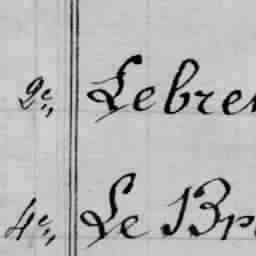 2e, Lebre
4e, Le Br